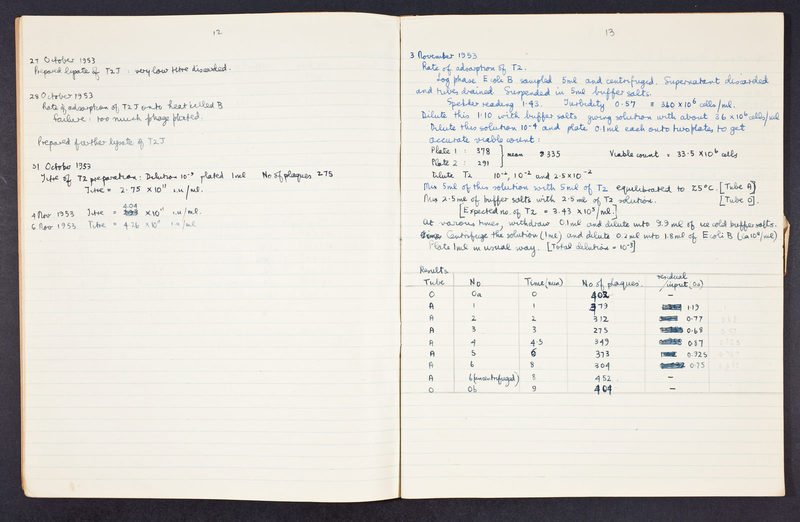 12
27 October 1953
Prepared lysate of T2J : very low titre discarded.
28 October 1953
Rate of adsorption of T2J onto heat killed B
failure : too much phage plated.
Prepared further lysate of T2J
31 October 1953
Titre of T2 preparation : Dilution 10⁻⁹ plated 1ml No of plaques 275
Titre = 2.75 × 10¹¹ i.u/ml.
4.04
4 Nov 1953 Titre = × 10¹¹ i.u/ml.
6 Nov 1953 Titre = 4.26 × 10¹¹ i.u/ml
13
3 November 1953
Rate of adsorption of T2.
Log phase E coli B sampled 5ml and centrifuged. Supernatant discarded
and tubes drained Suspended in 5ml buffer salts.
Spekker reading 1.43. Turbidity 0.57 = 360 × 10⁶ cells/ml.
Dilute this 1:10 with buffer salts giving solution with about 36 × 10⁶ cells/ml
Dilute this solution 10⁻⁴ and plate 0.1ml each onto two plates to get
accurate viable count :
Plate 1 : 378
Plate 2 : 291 } mean 335 Viable count = 33.5 × 10⁶ cells
Dilute T2 10⁻², 10⁻² and 2.5 × 10⁻²
Mix 5ml of this solution with 5ml of T2 equilibrated to 25°C. [Tube A]
Mix 2.5ml of buffer salts with 2.5ml of T2 solution. [Tube O].
[Expected no of T2 = 3.43 × 10⁵/ml.]
At various times, withdraw 0.1ml and dilute into 9.9ml of ice cold buffer salts.
Centrifuge the solution (1ml) and dilute 0.2ml into 1.8ml of E coli B (ca 10⁸/ml)
Plate 1ml in usual way. [Total dilution = 10⁻³]
Results
Tube No Time (min) No of plaques. residual/input (0a)
O 0a 0 402 –
A 1 1 379 1.19
A 2 2 312 0.77
A 3 3 275 0.68
A 4 4.5 349 0.87
A 5 6 373 0.925
A 6 8 304 0.75
A 6 (uncentrifuged) 8 452 –
O 0b 9 404 –